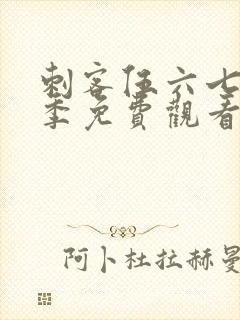 刺客伍六七
季免費觀看
阿卜杜拉赫曼